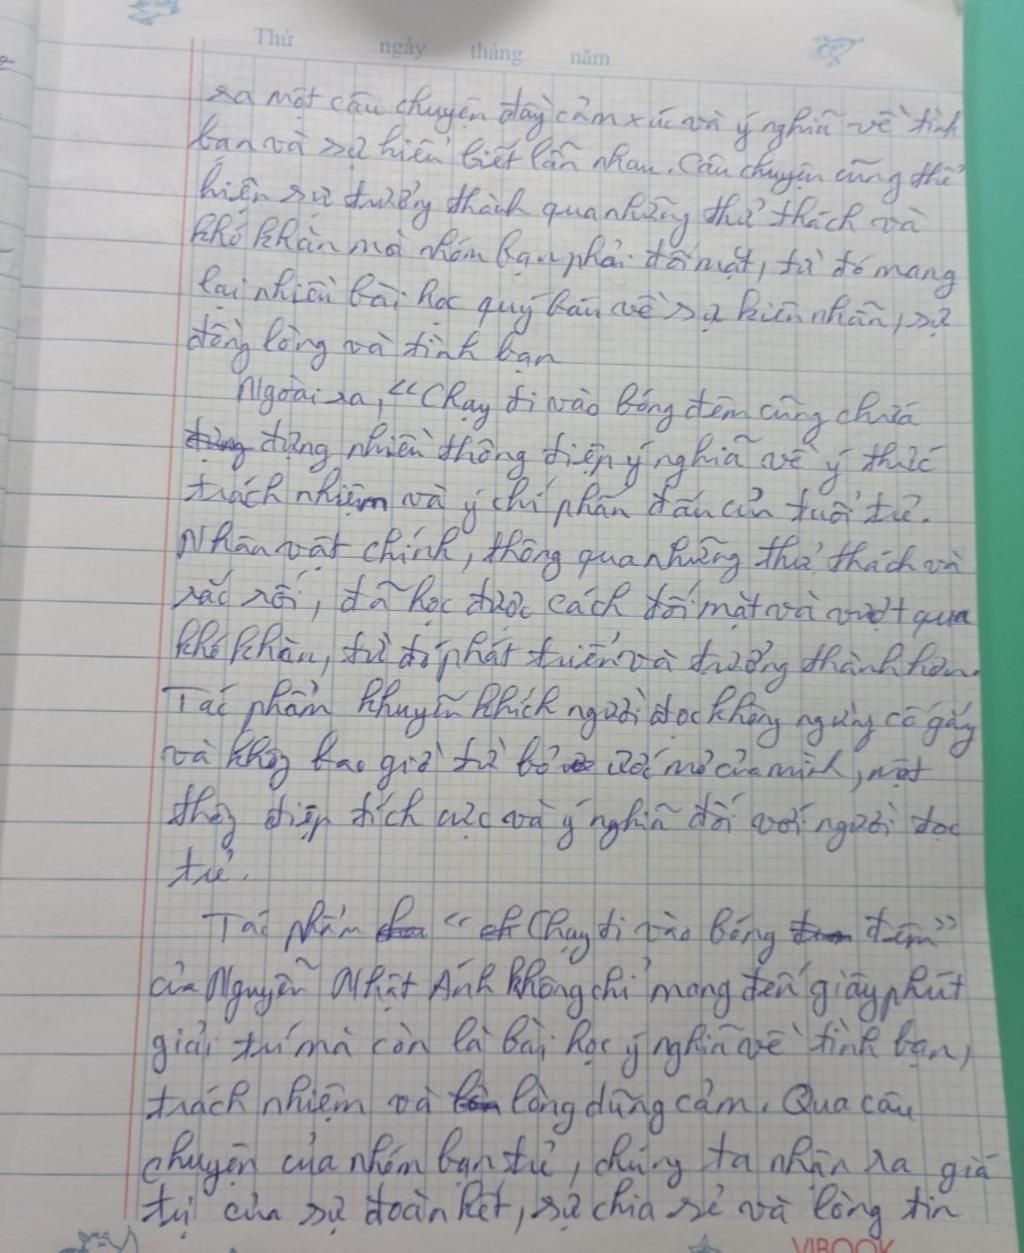 Thứ ngày tháng năm
ra một câu chuyện đầy cảm xúc và ý nghĩa về tình
bạn và sự hiểu biết lẫn nhau. Câu chuyện cũng thể
hiện sự trưởng thành qua những thử thách và
khó khăn mà nhóm bạn phải đối mặt, từ đó mang
lại nhiều bài học quý báu về sự kiên nhẫn, sự
đồng lòng và tình bạn
Ngoài ra, "Chạy đi vào bóng đêm cũng chứa
đựng nhiều thông điệp ý nghĩa về ý thức
trách nhiệm và ý chí phấn đấu của tuổi trẻ.
Nhân vật chính, thông qua những thử thách và
rắc rối, đã học được cách đối mặt và vượt qua
khó khăn, từ đó phát triển và trưởng thành hơn.
Tác phẩm khuyến khích người đọc không ngừng cố gắng
và không bao giờ từ bỏ ước mơ của mình, một
thông điệp tích cực và ý nghĩa đối với người đọc
trẻ.
Tác phẩm "Chạy đi vào bóng đêm"
của Nguyễn Nhật Ánh không chỉ mang đến giây phút
giải trí mà còn là bài học ý nghĩa về tình bạn,
trách nhiệm và lòng dũng cảm. Qua câu
chuyện của nhóm bạn trẻ, chúng ta nhận ra giá
trị của sự đoàn kết, sự chia sẻ và lòng tin
VIBOOK